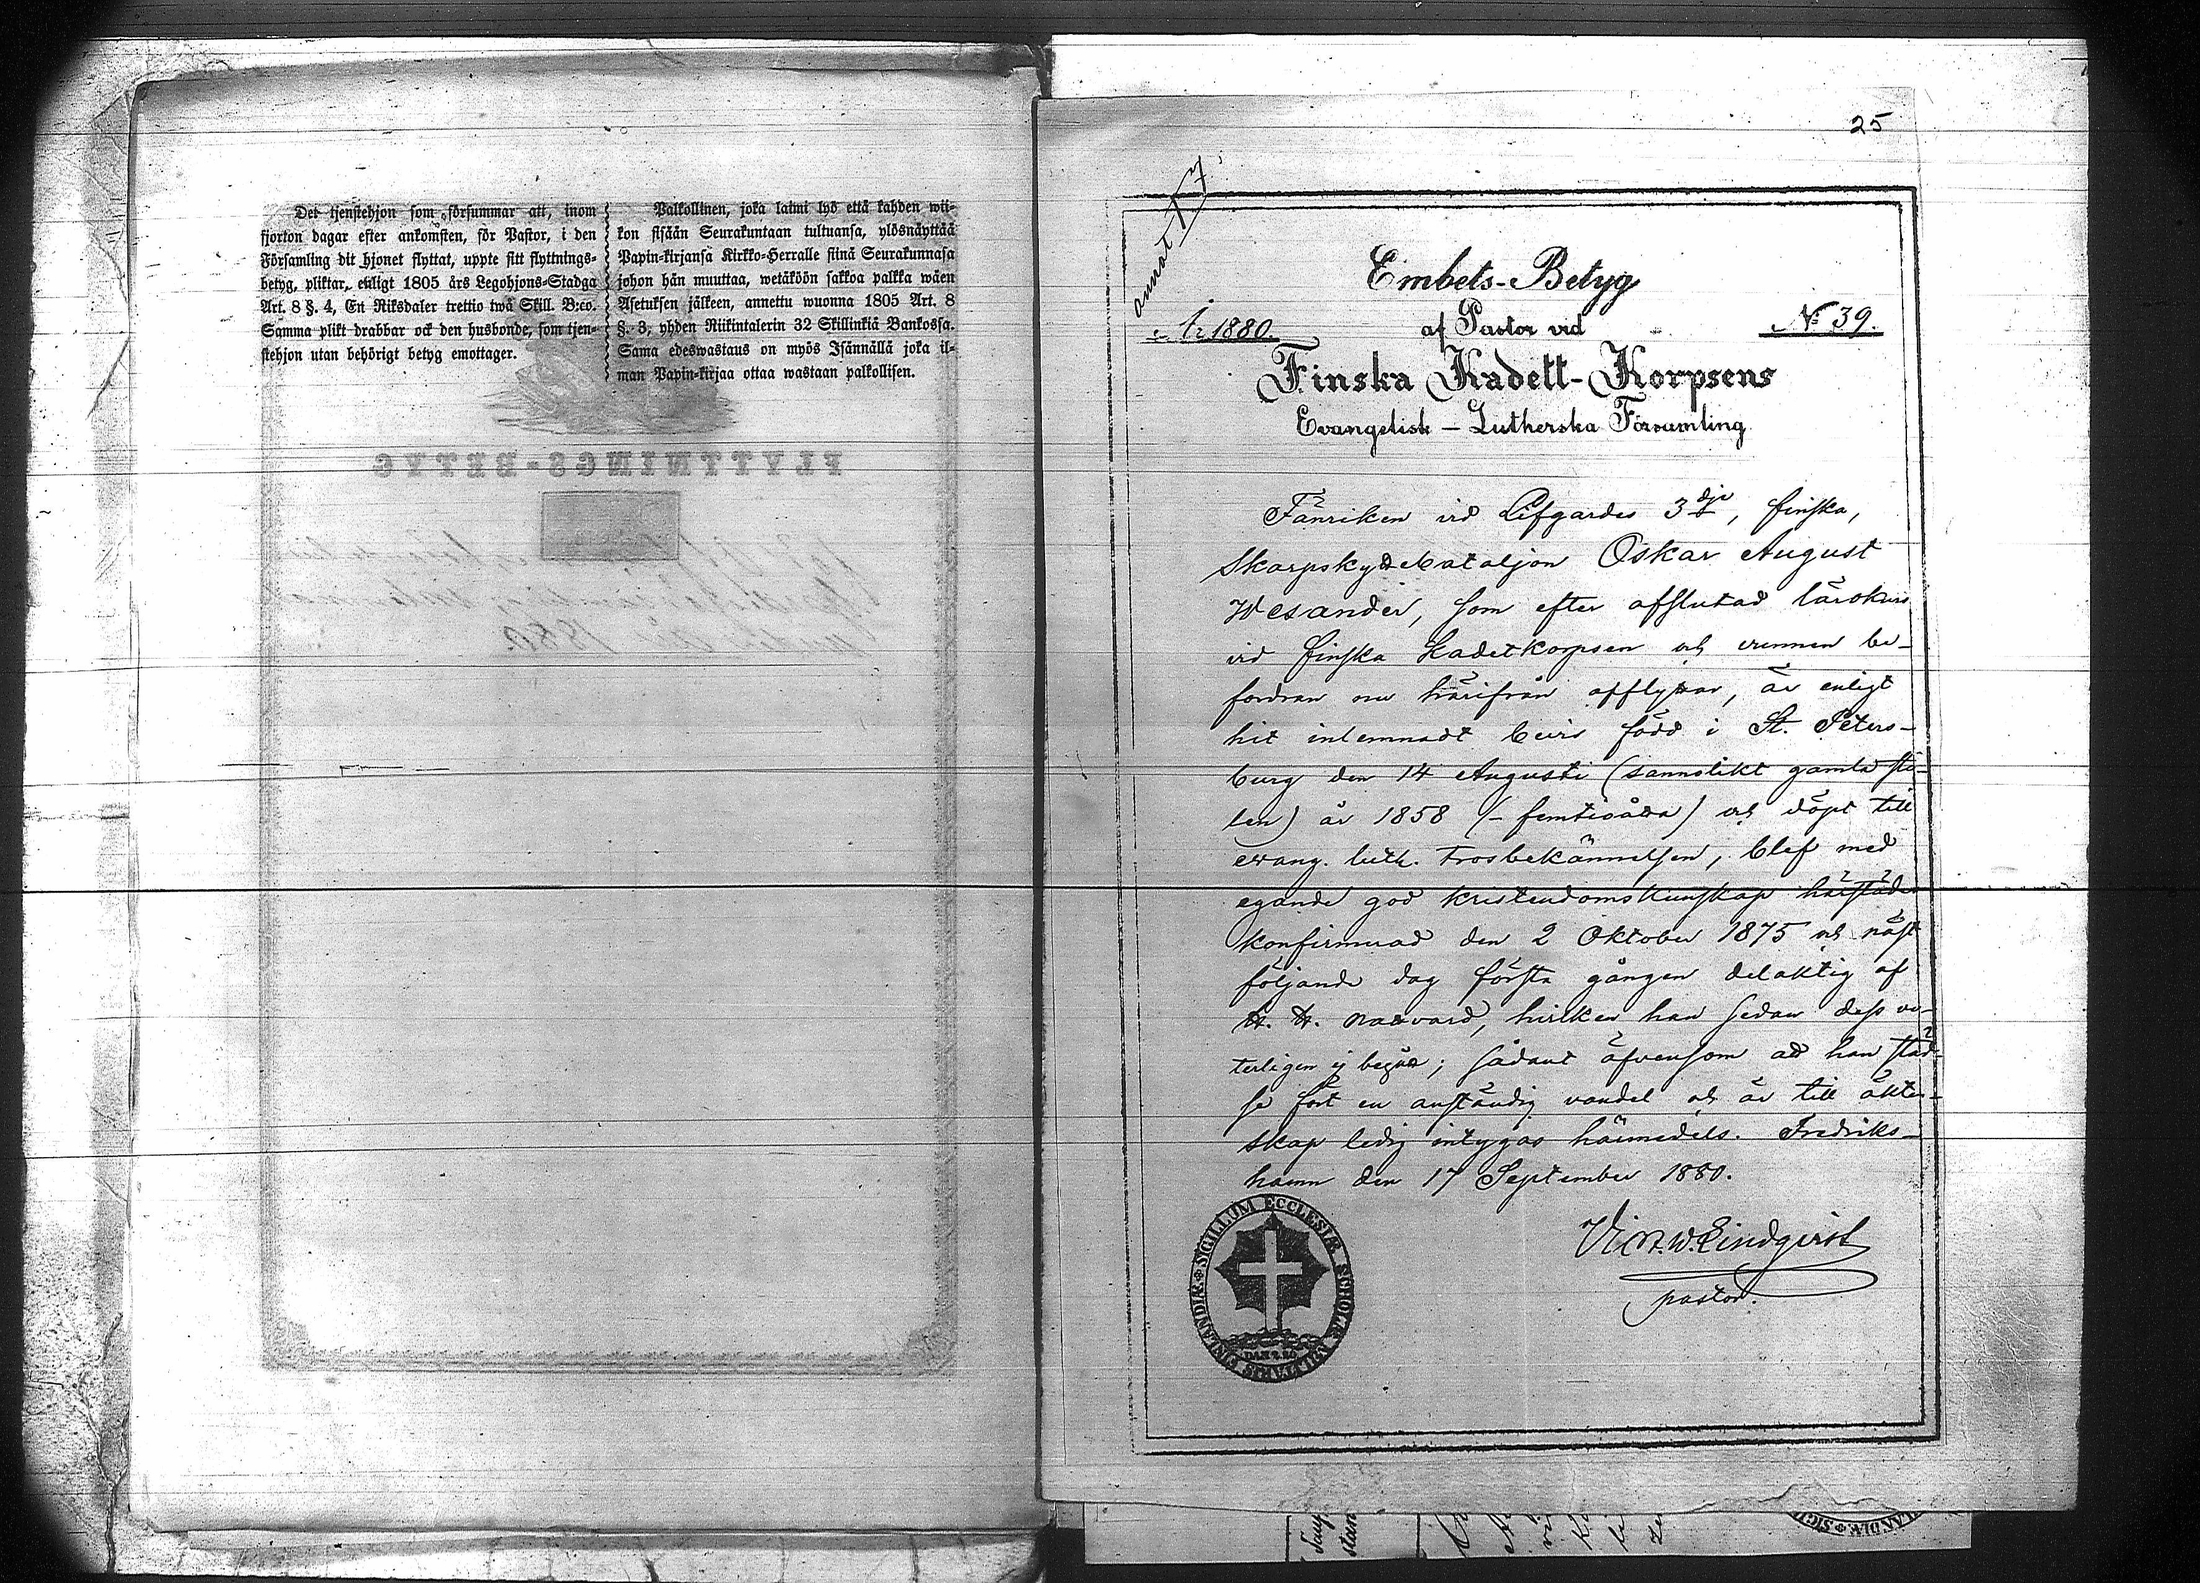 Det tjenstehjon som försummar att, inom
fjorton dagar efter ankomsten, för Pastor, i den
Församling dit hjonet flyttat, uppte sitt flyttnings-
betyg, pliktar, enligt 1805 års Legohjons-Stadga
Art. 8 §. 4, En Riksdaler trettio twå Skill. B:co.
Samma plikt drabbar ock den husbonde, som tjen-
stehjon utan behörigt betyg emottager.
Palkollinen, joka laimi lyö että kahden wii-
kon sisään Seurakuntaan tultuansa, ylösnäyttää
Papin-kirjansa Kirkko-Herralle siinä Seurakunnasa
johon hän muuttaa, wetäköön sakkoa palkka wäen
Asetuksen jälkeen, annettu wuonna 1805 Art. 8
§. 3, yhden Riikintalerin 32 Skillinkiä Bankossa.
Sama edeswastaus on myös Isännällä joka il-
man Papin-kirjaa ottaa wastaan palkollisen.
FLYTTNINGS-BETYG
25
Embets-Betyg
År 1880.
af Pastor vid
No 39.
Finska Kadett-Korpsens
Evangelisk - Lutherska Församling
Fänriken vid Lifgardes 3dje, finska,
Skarpskyttebataljon Oskar August
Wesander, som efter afslutad lärokurs
vid finska Kadettkorpsen och vunnen be-
fordran nu härifrån afflyttar, är enligt
hit inlemnadt bevis född i St. Peters-
burg den 14 Augusti (sannolikt gamla sti-
len) år 1858 (- femtioåtta) och döpt till
evang. luth. trosbekännelsen, blef med
egande god kristendomskunskap härstädes
konfirmerad den 2 Oktober 1875 och näst
följande dag första gången delaktig af
H. H. Nattvard, hvilken han sedan dess ve-
terligen ej begått; sådant äfvensom att han städ-
se fört en anständig vandel och är till äkten-
skap ledig intygas härmedels. Fredriks-
hamn den 17 September 1880.
W. Lindqvist
pastor.
SIGILLUM ECCLESIÆ SCHOLÆ MILITARIS FINLANDIÆ